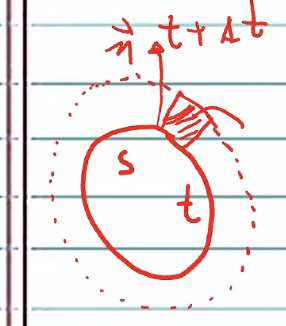 n⃗ t + Δt
S
t